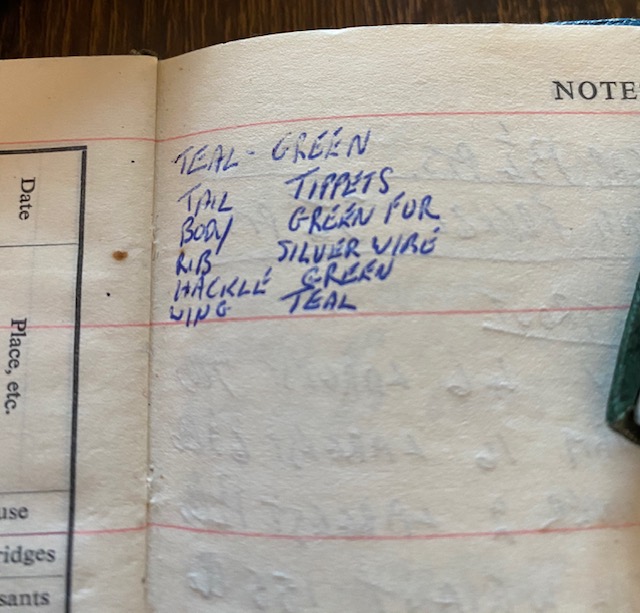 NOTE
TEAL - GREEN
TAIL TIPPETS
BODY GREEN FUR
RIB SILVER WIRE
HACKLE GREEN
WING TEAL
Date
Place, etc.
use
ridges
sants